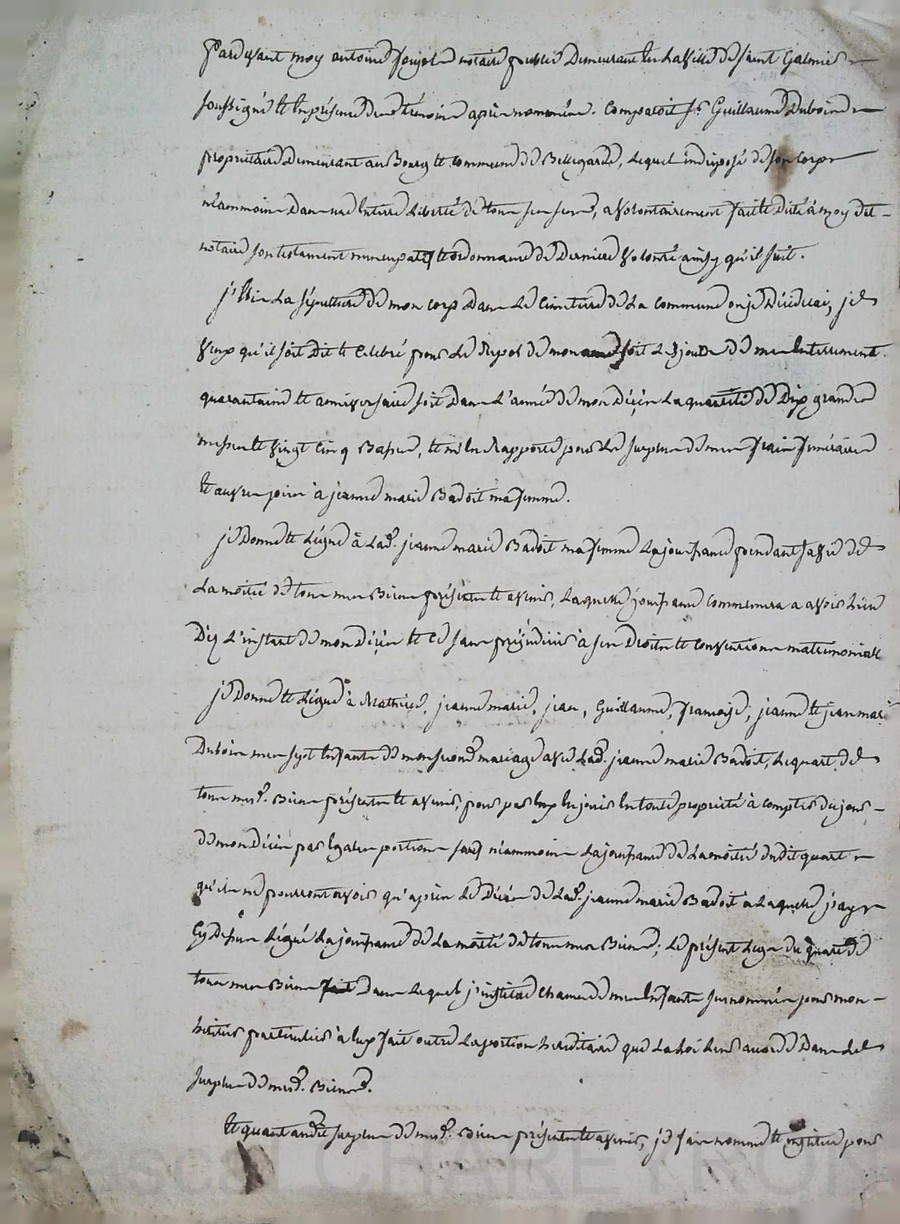 Pardevant moy antoine notaire public Demeurant en La ville de saint Galmier
soussigné et En présence des témoins après nommés. Comparoit Sr. Guillaume Duboin
propriétaire demeurant au Bourg et commune de Bellegarde, Lequel indisposé de son corps
néanmoins Dans une Entière Liberté de tous ses sens, a volontairement fait et dicté à moy dit
notaire son testament nuncupatif et ordonnance de Dernière volonté ainsy qu'il suit.
j'Elis La sépulture de mon corps Dans Le Cimetière de La commune où je Décéderai, je
veux qu'il soit Dit et Célébré pour Le Repos de mon ame soit Les jours de mes Enterrement
quarantaine et anniversaire soit Dans L'année de mon Décès La quantité de Dix grandes
messes et vingt Cinq Basses, et m'En Rapporte pour Le surplus de mes frais funéraires
et œuvres pies à jeanne marie Badoit ma femme.
je Donne et Lègue à Lad. jeanne marie Badoit ma femme La jouissance pendant sa vie de
La moitié de tous mes Biens présents et avenir, Laquelle jouissance commencera a avoir Lieu
Dès L'instant de mon Décès et ce sans préjudicier à ses Droits et conventions matrimoniale
je Donne et Lègue à Mathieu, jeanne marie, jean, Guillaume, françoise, jeanne et jean marie
Duboin mes sept Enfants de mon second mariage avec Lad. jeanne marie Badoit, Le quart de
tous mesd. Biens présents et avenir, pour par Eux En jouir En toute propriété à compter du jour
de mon Décès par égales portions sauf néanmoins La jouissance de La moitié dudit quart
qu'ils ne pourront avoir qu'après Le Décès de Lad. jeanne marie Badoit à Laquelle j'ay
Cy Dessus Légué La jouissance de La moitié de tous mes Biens, Le présent Legs du quart de
tous mes Biens fait Dans Lequel j'institue chacun de mes Enfants surnommés pour mon
héritier particulier à Eux fait outre La portion héréditaire que La Loi Leur accorde Dans Le
surplus de mesd. Biens.
Et quant audit surplus de mesd. Biens présents et avenir, je fais nomme et institue pour